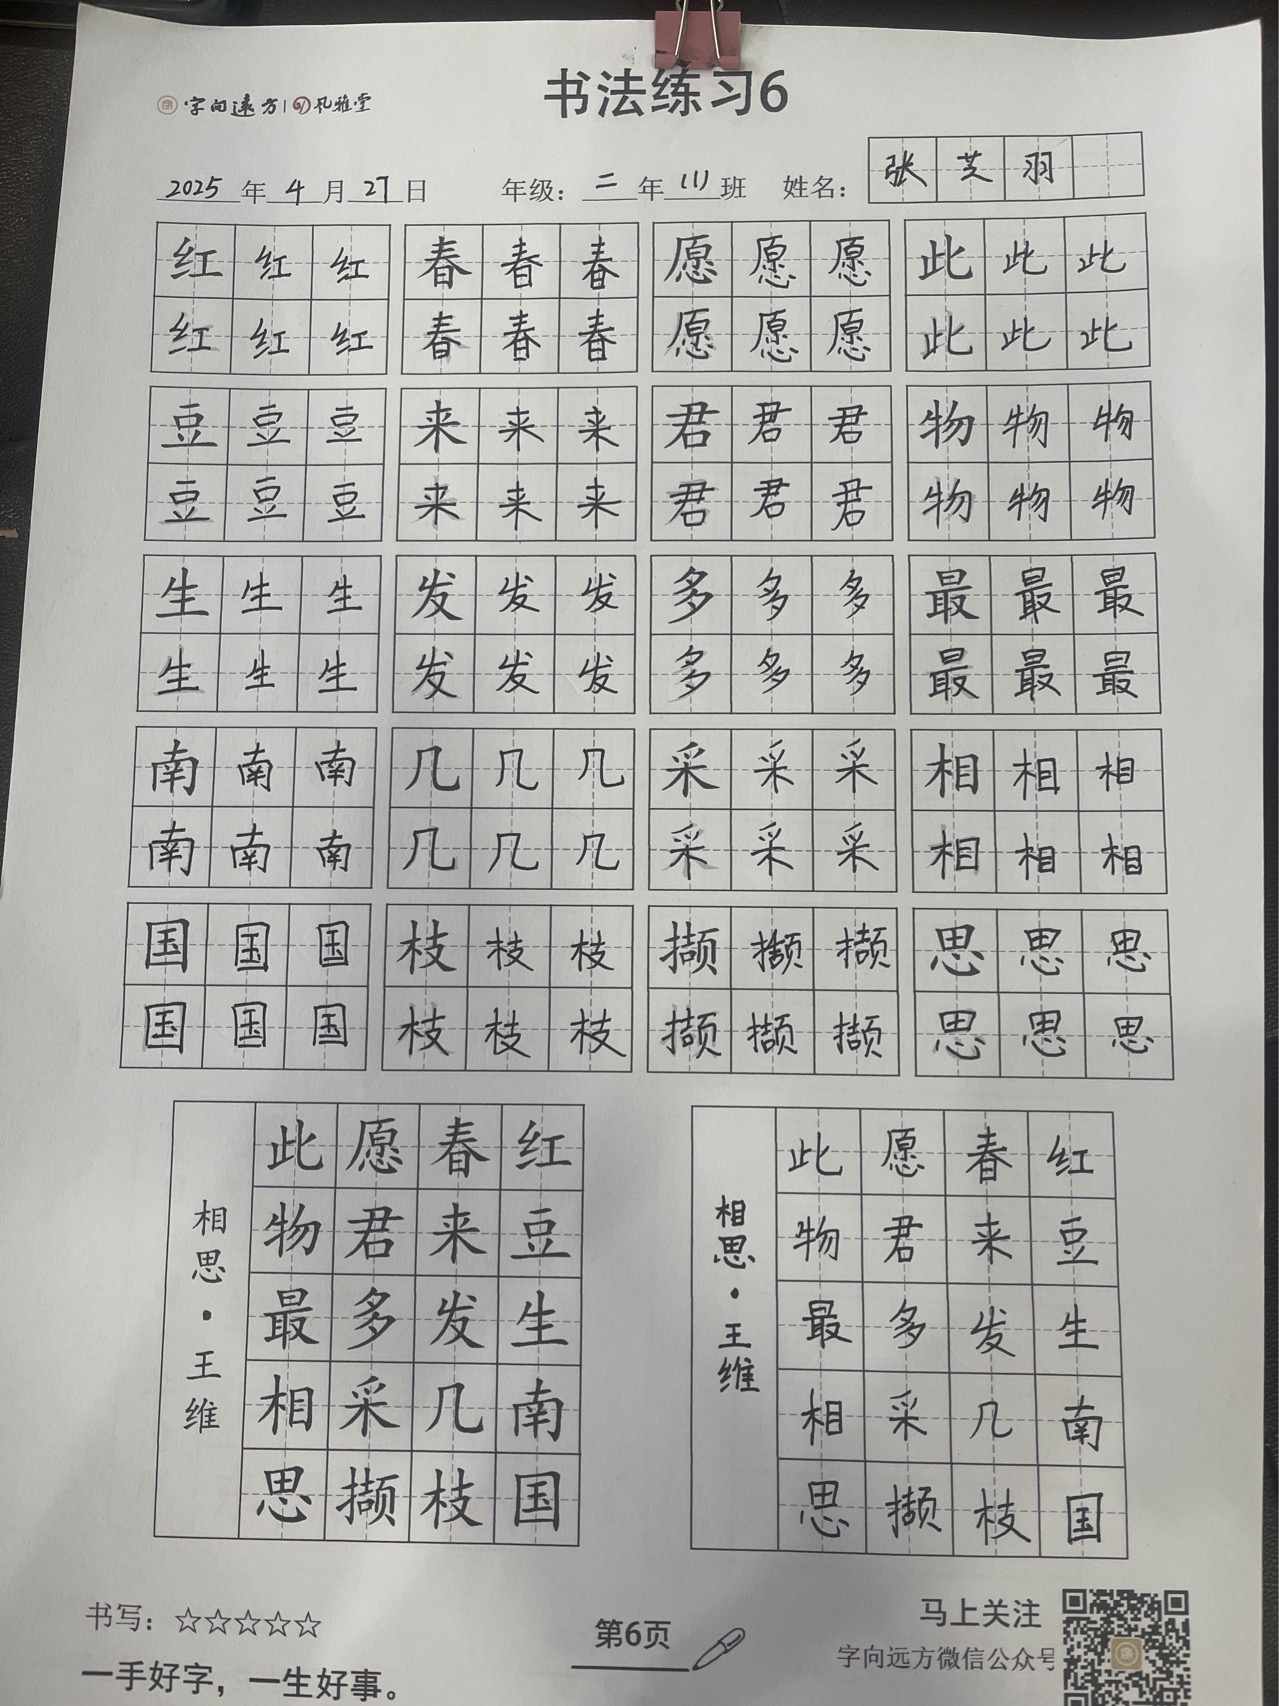 字向远方 | 孔雅堂
书法练习6
2025年4月27日 年级：二年(1)班 姓名：张芝羽
红红红 春春春 愿愿愿 此此此
红红红 春春春 愿愿愿 此此此
豆豆豆 来来来 君君君 物物物
豆豆豆 来来来 君君君 物物物
生生生 发发发 多多多 最最最
生生生 发发发 多多多 最最最
南南南 几几几 采采采 相相相
南南南 几几几 采采采 相相相
国国国 枝枝枝 撷撷撷 思思思
国国国 枝枝枝 撷撷撷 思思思
红豆生南国
春来发几枝
愿君多采撷
此物最相思
相思·王维
红豆生南国
春来发几枝
愿君多采撷
此物最相思
相思·王维
书写：☆☆☆☆☆
一手好字，一生好事。
第6页
马上关注
字向远方微信公众号